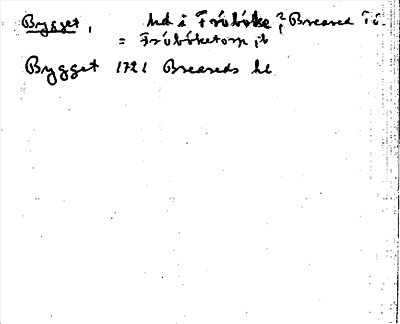 Bygget, hd i Fröböke, Breared Tö.
= Fröböketorp, ib
Bygget 1721 Breareds kl